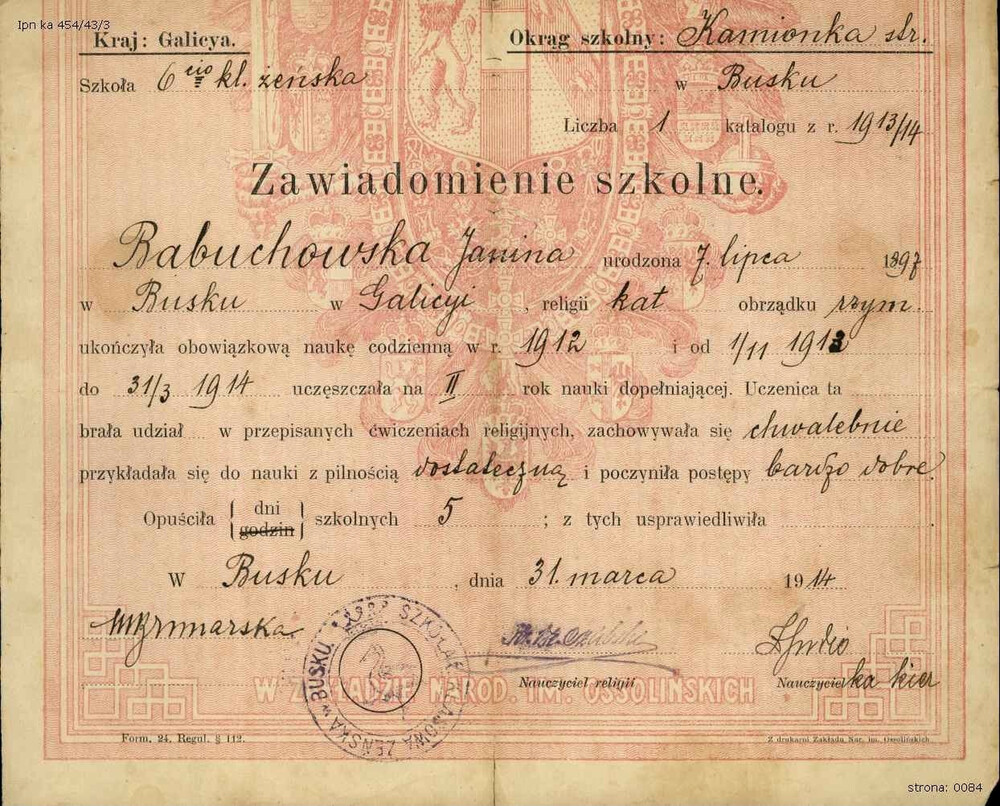 Ipn ka 454/43/3
Kraj: Galicya. Okrąg szkolny: Kamionka str.
Szkoła 6 cio kl. żeńska w Busku
Liczba 1 katalogu z r. 1913/14
Zawiadomienie szkolne.
Babuchowska Janina urodzona 7. lipca 1897
w Busku w Galicyi, religii kat obrządku rzym.
ukończyła obowiązkową naukę codzienną w r. 1912 i od 1/11 1913
do 31/3 1914 uczęszczała na II rok nauki dopełniającej. Uczenica ta
brała udział w przepisanych ćwiczeniach religijnych, zachowywała się chwalebnie
przykładała się do nauki z pilnością dostateczną i poczyniła postępy bardzo dobre
Opuściła { dni godzin } szkolnych 5 ; z tych usprawiedliwiła
W Busku, dnia 31. marca 1914
SZKOŁA KLASOWA ŻEŃSKA w BUSKU
Nauczyciel religii Nauczycielka kier
W ZAKŁADZIE NAROD. IM. OSSOLIŃSKICH
Form. 24. Regul. § 112. Z drukarni Zakładu Nar. im. Ossolińskich
strona: 0084